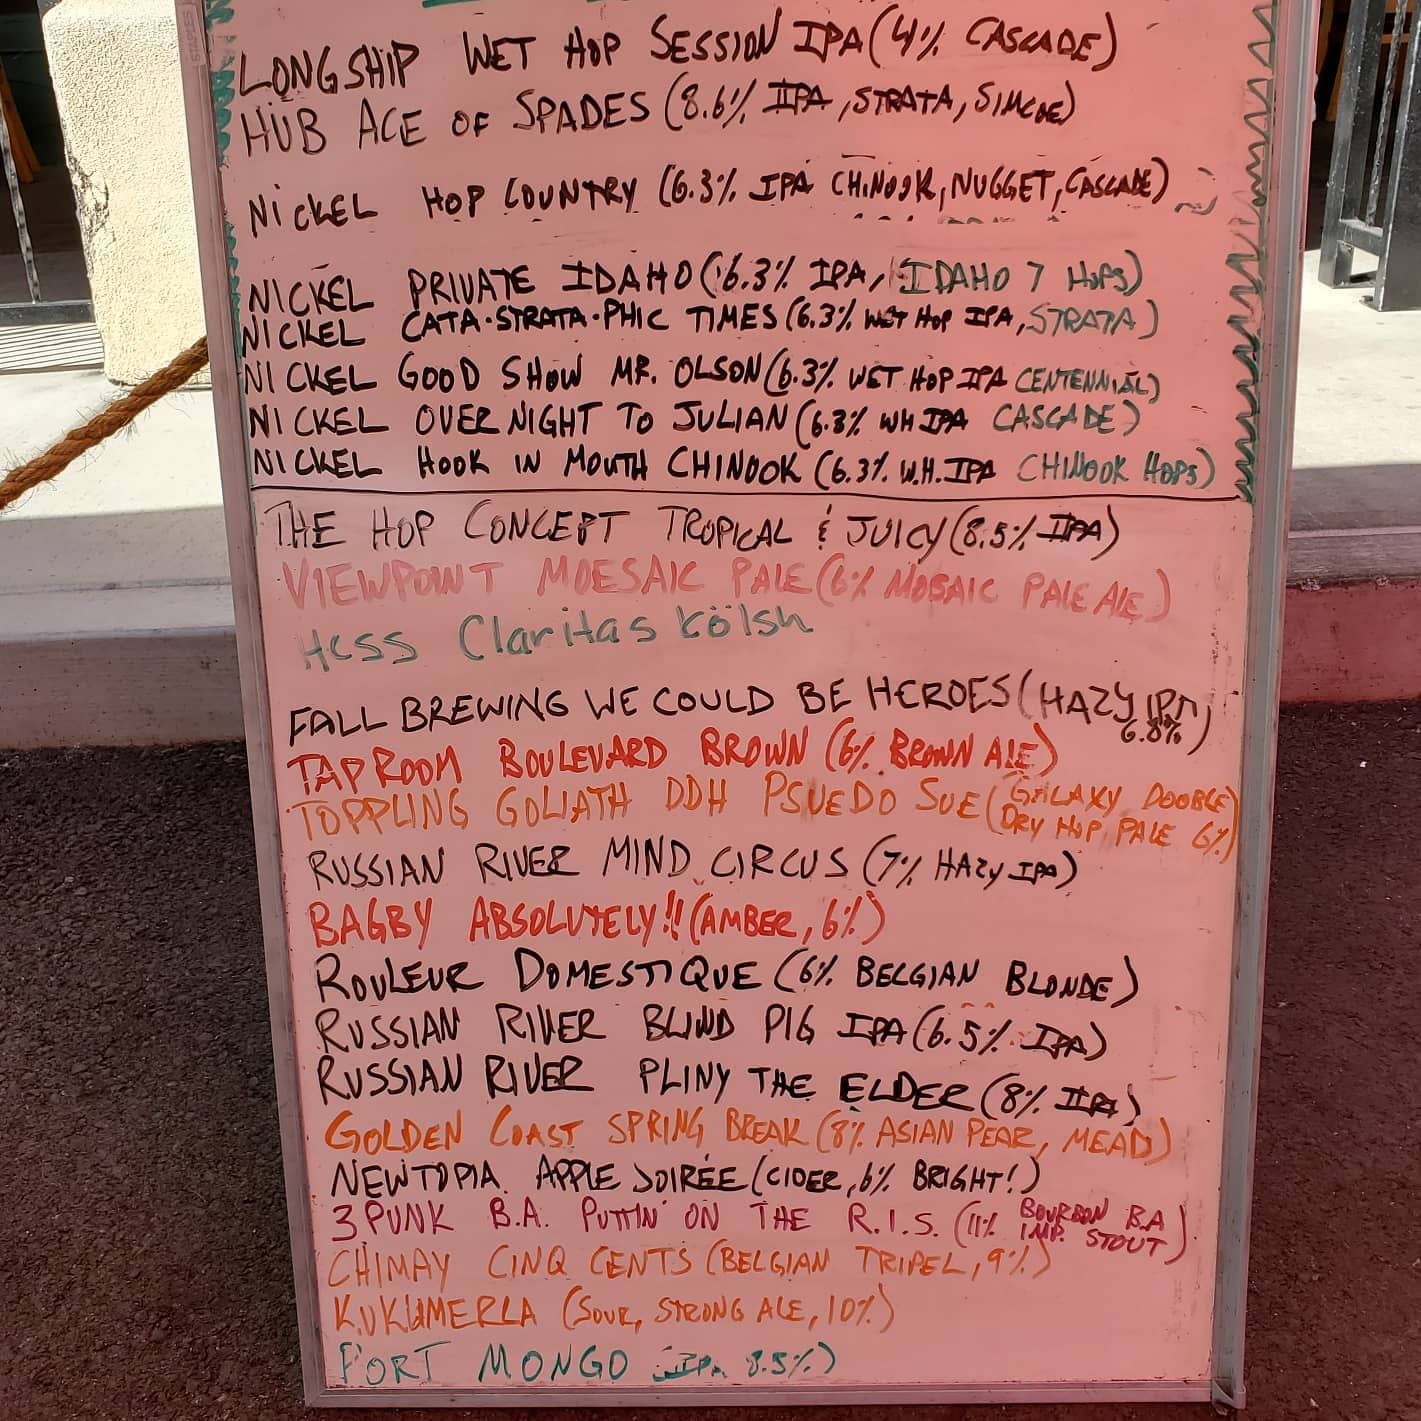 STAPLES
LONGSHIP WET HOP SESSION IPA (4% CASCADE)
HUB ACE OF SPADES (8.6% IIPA, STRATA, SIMCOE)
NICKEL HOP COUNTRY (6.3% IPA CHINOOK, NUGGET, CASCADE)
NICKEL PRIVATE IDAHO (6.3% IPA, IDAHO 7 HOPS)
NICKEL CATA·STRATA·PHIC TIMES (6.3% WET HOP IPA, STRATA)
NICKEL GOOD SHOW MR. OLSON (6.3% WET HOP IPA CENTENNIAL)
NICKEL OVERNIGHT TO JULIAN (6.3% WH IPA CASCADE)
NICKEL HOOK IN MOUTH CHINOOK (6.3% W.H. IPA CHINOOK HOPS)
THE HOP CONCEPT TROPICAL & JUICY (8.5% IIPA)
VIEWPOINT MOESAIC PALE (6% MOSAIC PALE ALE)
Hess Claritas Kölsh
FALL BREWING WE COULD BE HEROES (HAZY IPA
6.8%)
TAPROOM BOULEVARD BROWN (6% BROWN ALE)
TOPPLING GOLIATH DDH PSUEDO SUE (GALAXY DOOBLE
DRY HOP PALE 6%)
RUSSIAN RIVER MIND CIRCUS (7% HAZY IPA)
BAGBY ABSOLUTELY!! (AMBER, 6%)
ROULEUR DOMESTIQUE (6% BELGIAN BLONDE)
RUSSIAN RIVER BLIND PIG IPA (6.5% IPA)
RUSSIAN RIVER PLINY THE ELDER (8% IIPA)
GOLDEN COAST SPRING BREAK (8% ASIAN PEAR, MEAD)
NEWTOPIA APPLE SOIRÉE (CIDER, 6% BRIGHT!)
3 PUNK B.A. PUTTIN' ON THE R.I.S. (11% BOURBON B.A
IMP. STOUT)
CHIMAY CINQ CENTS (BELGIAN TRIPEL, 9%)
KUKUMERLA (SOUR, STRONG ALE, 10%)
PORT MONGO IIPA 8.5%)